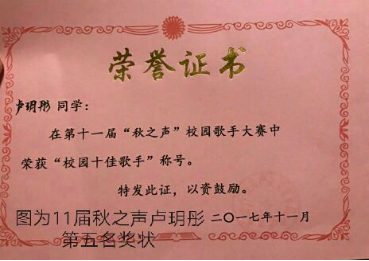 荣誉证书
卢玥彤 同学：
在第十一届“秋之声”校园歌手大赛中
荣获“校园十佳歌手”称号。
特发此证，以资鼓励。
二〇一七年十一月
图为11届秋之声卢玥彤
第五名奖状